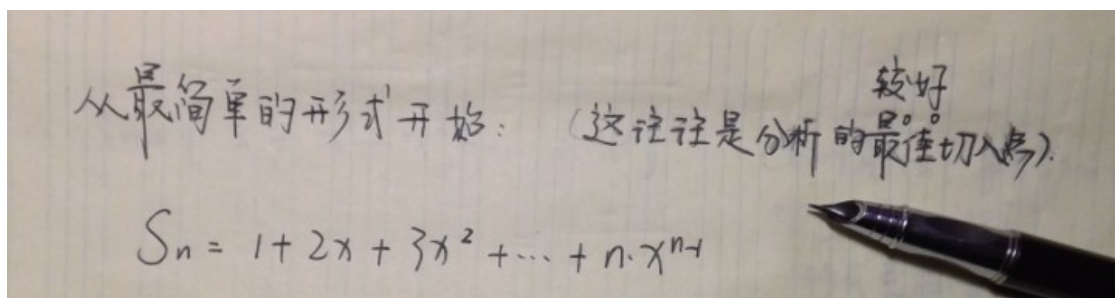 从最简单的形式开始: (这往往是分析的最佳切入点).
较好
Sn = 1 + 2x + 3x² + ... + n·xⁿ⁻¹